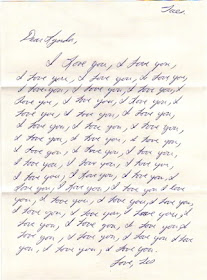 Tues.
Dear Lynda,
I love you, I love you,
I love you, I love you, I love you,
I love you, I love you, I love you, I
love you, I love you, I love you, I
love you, I love you, I love you,
I love you, I love you, I love you,
I love you, I love you, I love you,
I love you, I love you, I love you,
I love you, I love you, I love you,
I love you, I love you, I love you,
I love you, I love you, I love
you, I love you, I love you, I love you,
I love you, I love you, I love you, I
love you, I love you, I love you, I love
you, I love you, I love you, I love
you, I love you, I love you.
Love,